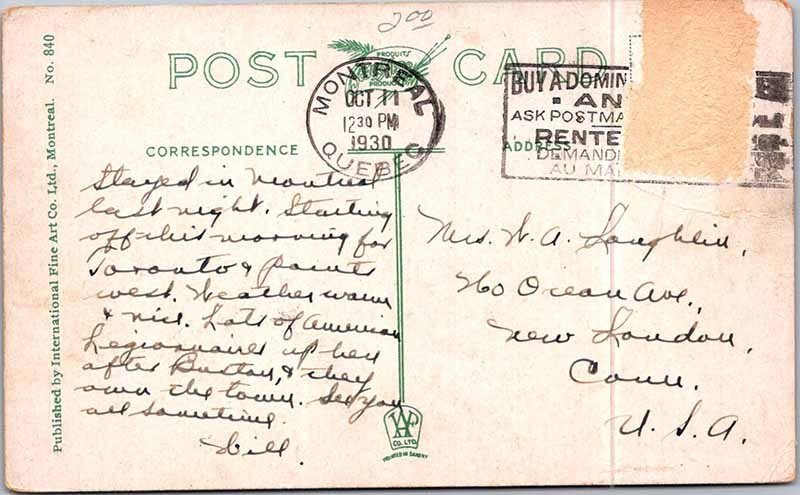 2.00
POST CARD
PRODUITS
PRODUCTS
MONTREAL
OCT 11
12 30 PM
1930
QUEBEC
BUY A DOMIN
AN
ASK POSTMA
RENTE
DEMAND
AU MA
CORRESPONDENCE
ADDRESS
Stayed in Montreal
last night. Starting
off this morning for
Toronto & points
west. Weather warm
& nice. Lots of American
Legionnaires up here
after Boston, & they
own the town. See you
all sometime.
Bill.
Mrs. W. A. Laughlin,
260 Ocean Ave.,
New London,
Conn.
U. S. A.
Published by International Fine Art Co. Ltd., Montreal. No. 840
CO. LTD.
PRINTED IN SAXONY